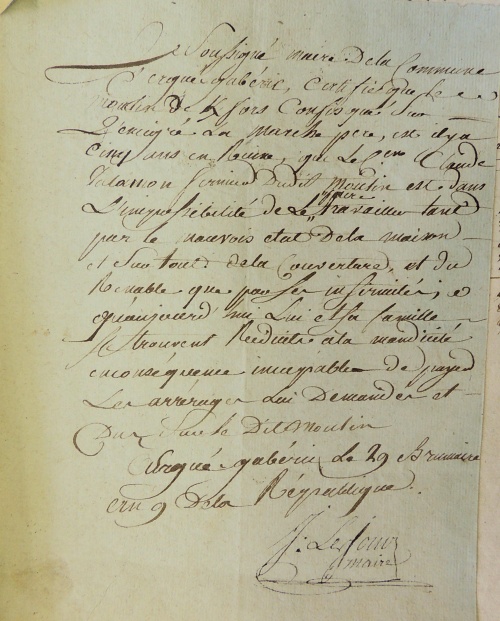 Le Soussigné maire de la Commune
d'Ergué-gabéric, Certifie que le
moulin de Kfors Confisqué sur
L'émigré La marche pere, est il y a
Cinq ans en Ruine, que le Cen Claude
Salamon fermier dudit Moulin est dans
L'impossibilité de le faire travailler tant
par le mauvois état de la maison
et surtout de la Couverture, et du
Renable que par ses infirmités, e
qu'aujourd'hui Lui et sa famille
se trouvent Reduits à la mandicité
en conséquence incapable de payer
Les arrérages Lui Demandés et
Dus sur le Dit Moulin
Ergué-gabéric Le 29 Brumaire
an 9 De la République.
J: Le Jour
maire